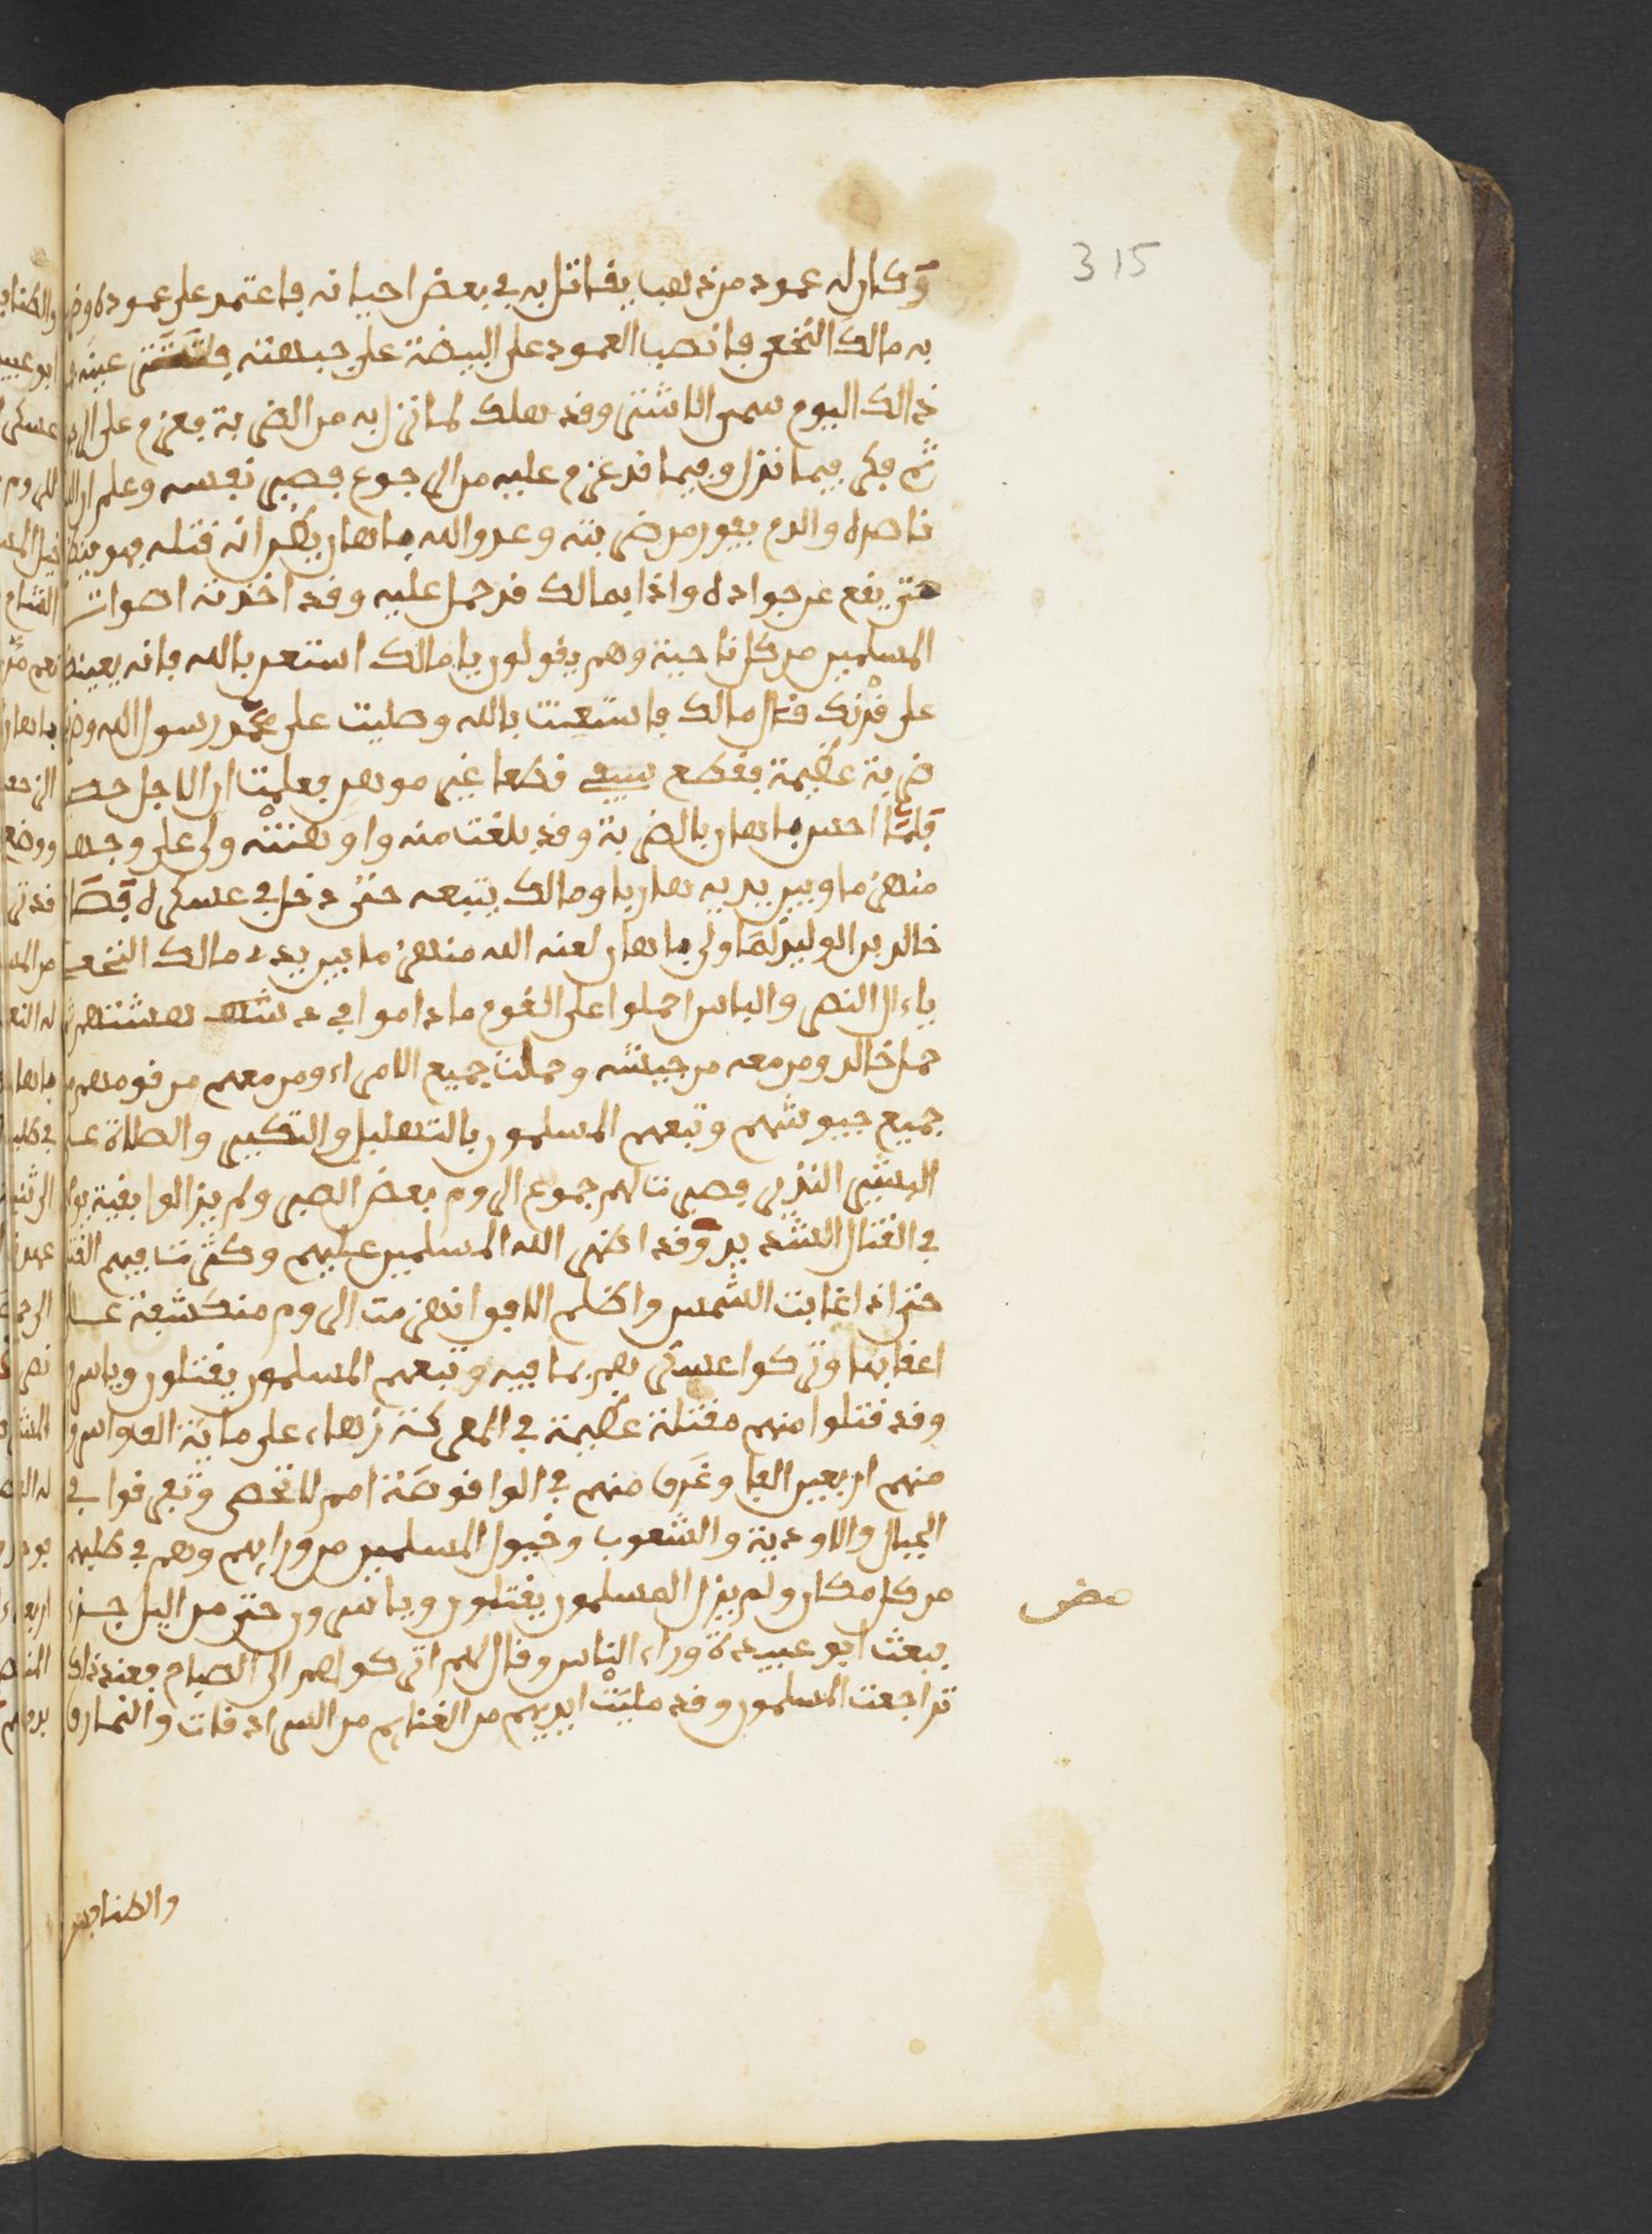 315
وكان له عمود من ذهب يقاتل به في بعض احيانه فاعتمد على عموده وض
به مالك النخعي فانصب العمود على البيضة على جبهته فشترت عينه
ذالك اليوم سمي الاشتر وقد هلك لما نزل به من الضربة فعزم على الر
ثم فكر فيما نزل وفيما قد عزم عليه من الرجوع فصبر نفسه وعلم ان الله
ناصره والدم يفور من ضربته وعدو الله ماهان يظن انه قتله فهو ينظر
حتى يقع عن جواده واذا بمالك قد حمل عليه وقد اخذته اصوات
المسلمين من كل ناحية وهم يقولون يا مالك استعن بالله فانه يعينك
على قرنك قال مالك فاستعنت بالله وصليت على محمد رسول الله وض
ضربة عظيمة فقطع سيفي قطعا غير موهن فعلمت ان الاجل حصن
فلما احس ماهان بالضربة وقد بلغت منه واوهنته ولى على وجهه
منهزما وبين يديه هاربا ومالك يتبعه حتى دخل في عسكره فصا
خالد بن الوليد لما ولى ماهان لعنه الله منهزما بين يدي مالك النخعي
ياءال النصر والباس احملوا على القوم ما داموا في دهشتهم ثم
حمل خالد ومن معه من جيشه وحملت جميع الامراء ومن معهم من قومهم
جميع جيوشهم وتبعهم المسلمون بالتهليل والتكبير والصلاة على
البشير النذير فصبرت لهم جموع الروم بعض الصبر ولم يزالوا بقية يو
في القتال الشديد وقد اظهر الله المسلمين عليهم وكثرت فيهم القتلا
حتى اذا غابت الشمس واظلم الافق انهزمت الروم منكشفة على
اعقابها وتركوا عسكرهم بما فيه وتبعهم المسلمون يقتلون وياسر
وقد قتلوا منهم مقتلة عظيمة في المعركة زهاء على ماية الف واسر
منهم اربعين الفا وغرق منهم في الواقوصة امم لا تحصى وتفرقوا في
الجبال والاودية والشعوب وخيول المسلمين من ورايهم وهم في طلبهم
من كل مكان ولم يزل المسلمون يقتلون وياسرون حتى مر اليل جزء
فبعث ابو عبيدة وراء الناس وقال لهم اتركوهم الى الصباح فعند ذالك
تراجعت المسلمون وقد مليت ايديهم من الغنايم من السرادقات والنمارق
والطنافس